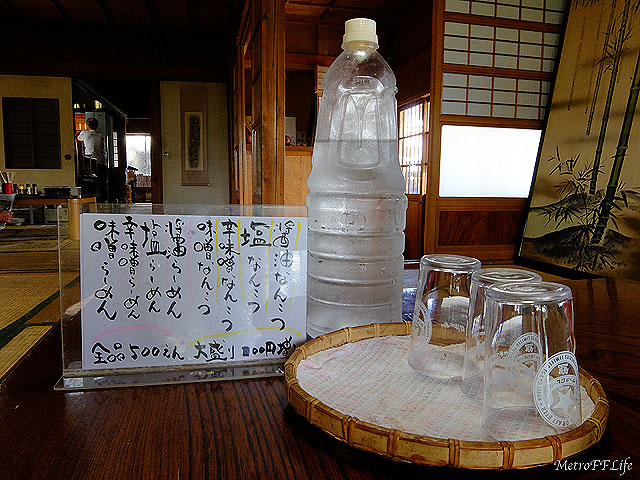 醤油なんこつ
塩なんこつ
辛味噌なんこつ
味噌なんこつ
醤油らーめん
塩らーめん
辛味噌らーめん
味噌らーめん
全品500えん 大盛り100円増
MetroFFLife